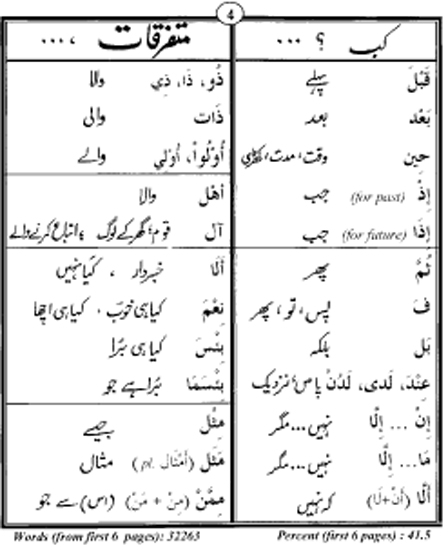 4
کب ؟ ...
قَبْلَ پہلے
بَعْد بعد
حِين وقت، مدت، گھڑی
إِذْ (for past) جب
إِذَا (for future) جب
ثُمَّ پھر
فَ پس، تو، پھر
بَل بلکہ
عِنْدَ، لَدی، لَدُنْ پاس، نزدیک
إِنْ ... إِلَّا نہیں...مگر
مَا... إِلَّا نہیں...مگر
أَلَّا (أَنْ+لَا) کہ نہیں
متفرقات ، ...
ذُو، ذَا، ذِي والا
ذَات والی
أُولُوا، أُولِي والے
أَهْل والا
آل قوم، گھر کے لوگ ، اتباع کرنے والے
أَلَا خبردار ، کیا نہیں
نِعْمَ کیا ہی خوب، کیا ہی اچھا
بِئْسَ کیا ہی بُرا
بِئْسَمَا بُرا ہے جو
مِثْل جیسے
مَثَل (أَمْثَال pl.) مثال
مِمَّنْ (مِنْ + مَنْ) (اس) سے جو
Words (from first 6 pages): 32263
Percent (first 6 pages) : 41.5